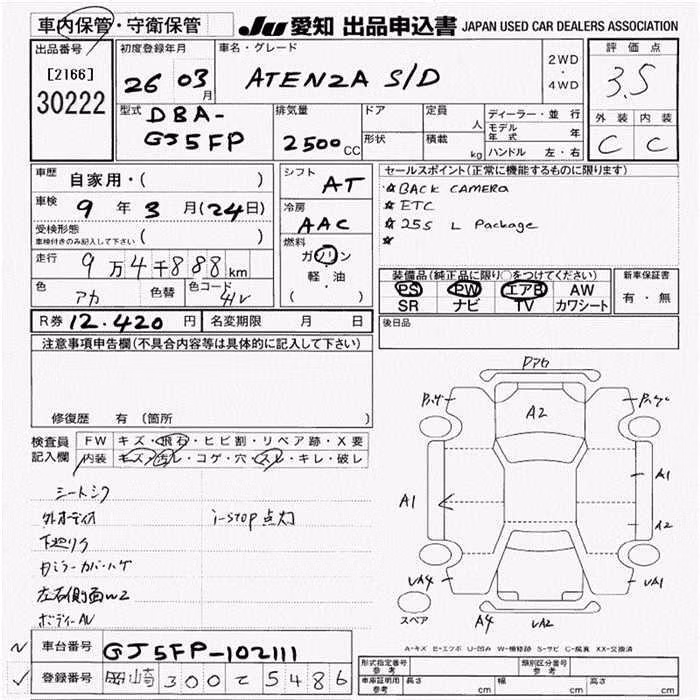 車内保管・守衛保管
JU 愛知 出品申込書 JAPAN USED CAR DEALERS ASSOCIATION
出品番号
[2166]
30222
初度登録年月
26 03月
車名・グレード
ATENZA S/D
2WD
・
4WD
評価点
3.5
外装 内装
C C
型式
DBA-
GJ5FP
排気量
2500CC
ドア
形状
定員 人
積載 kg
ディーラー・並行
モデル年式 年
ハンドル 左・右
車歴 自家用・( )
車検 9年3月(24日)
受検形態
車検付きのみ記入して下さい ( )
走行 9万4千888km
色 アカ 色替 色コード 41V
シフト AT
冷房 AAC
燃料
ガソリン
軽・油
( )
セールスポイント(正常に機能するものに限ります)
☆BACK CAMERA
☆ETC
☆25S L Package
☆
装備品(純正品に限り〇をつけてください)
PS PW エアB AW
SR ナビ TV カワシート
新車保証書
有・無
R券 12.420円 名変期限 月 日
後日品
注意事項申告欄(不具合内容等は具体的に記入して下さい)
修復歴 有 (箇所
検査員記入欄
FW キズ・飛石・ヒビ割・リペア跡・X要
内装 キズ・汚レ・コゲ・穴・スレ・キレ・破レ
シートシワ
外オーディオ i-stop点灯
下廻りサ
カミラーカバーハゲ
左右側面W2
ボディーAU
アカ
A2
A1
A1
A2
UA4
UA1
A4
UA2
スペア
A-キズ E-エクボ U-凹み W-補修跡 S-サビ C-腐食 XX-交換済
車台番号 GJ5FP-102111
登録番号 岡崎 300 て 5486
形式指定番号 参考
類別区分番号 参考
車庫証明用 参考 長さ cm 幅 cm 高さ cm